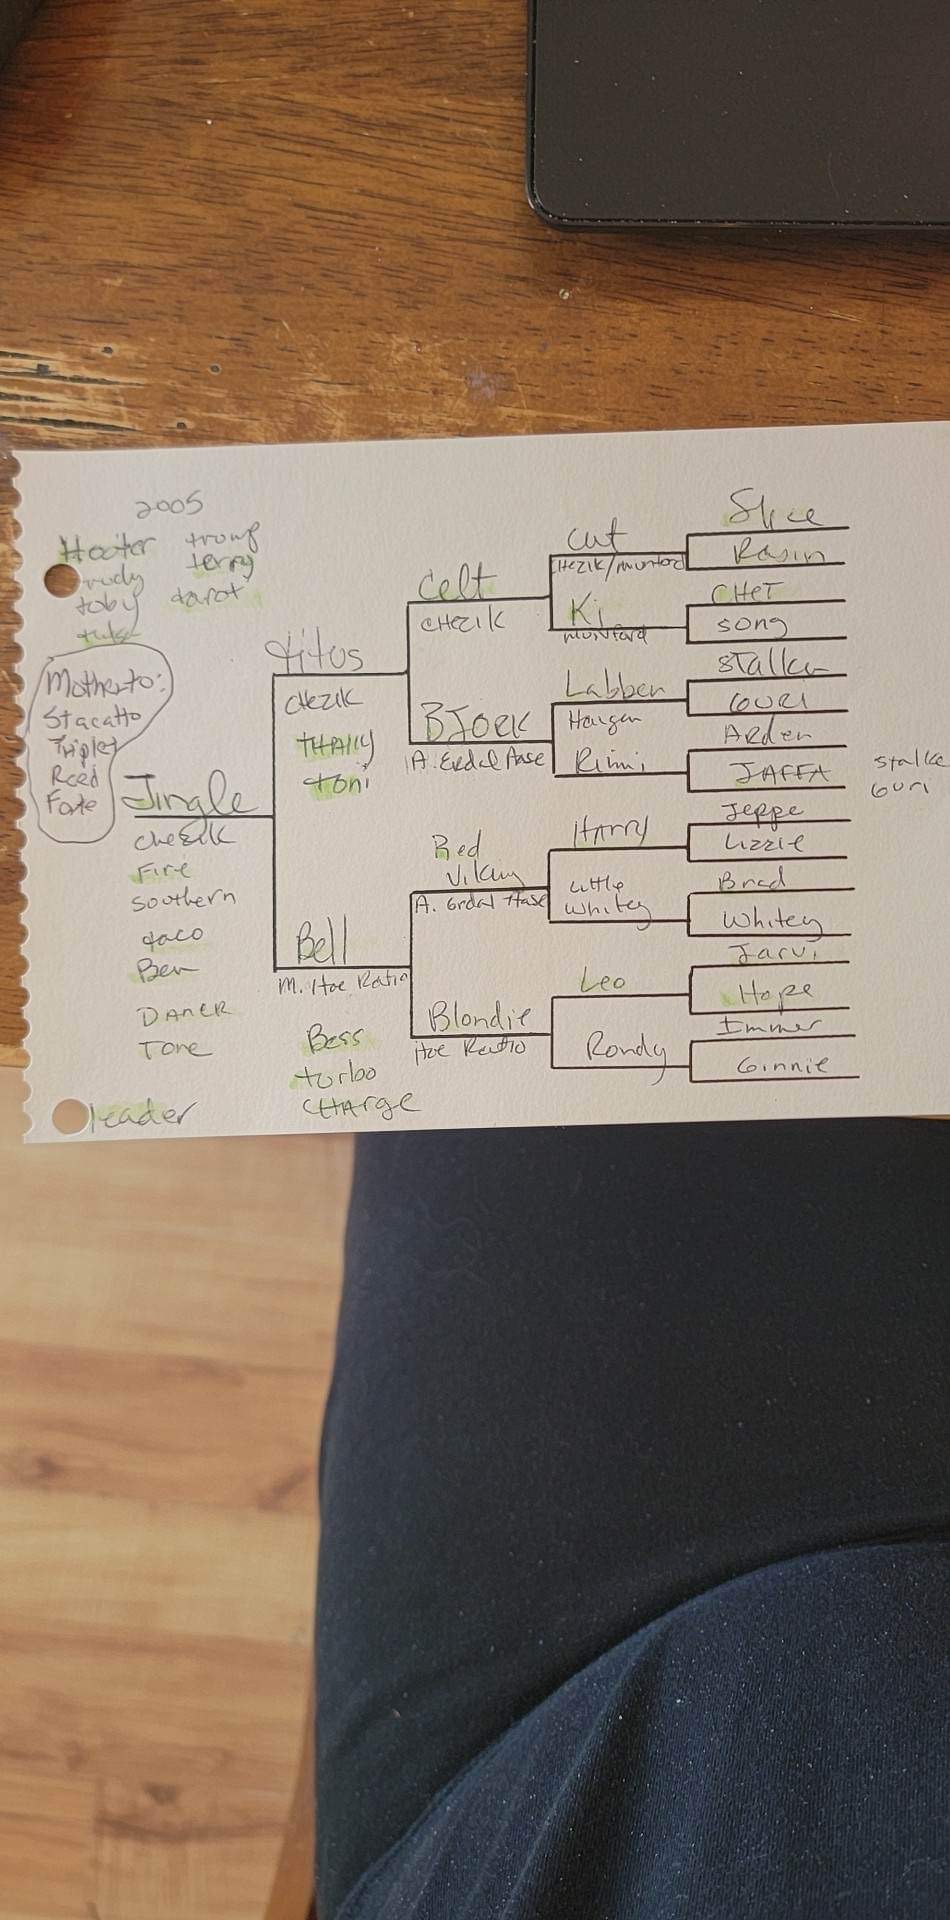 2005
Hooter tromp
rudy terry
toby tarot
Mother to:
Stacatto
Triplet
Reed
Forte
Jingle
chezik
Fire
Southern
taco
Ben
DANCER
Tone
leader
titus
CHEZIK
THALLY
toni
Bell
M. Hoe Ratio
Bess
turbo
CHARGE
Celt
CHEZIK
BJOEK
A. Erdal Aase
Red
Viking
A. Erdal Aase
Blondie
Hoe Ratio
cut
CHEZIK/Muntord
Ki
Labben
Haugen
Rimi
HARRY
Little
Whitey
Leo
Rondy
Slice
Rasin
CHET
SONG
STalker
GURI
Arden
JAFFA
Stalke
Guri
Jeppe
Lizzie
Brad
Whitey
Jarvi
Hope
Immer
Ginnie